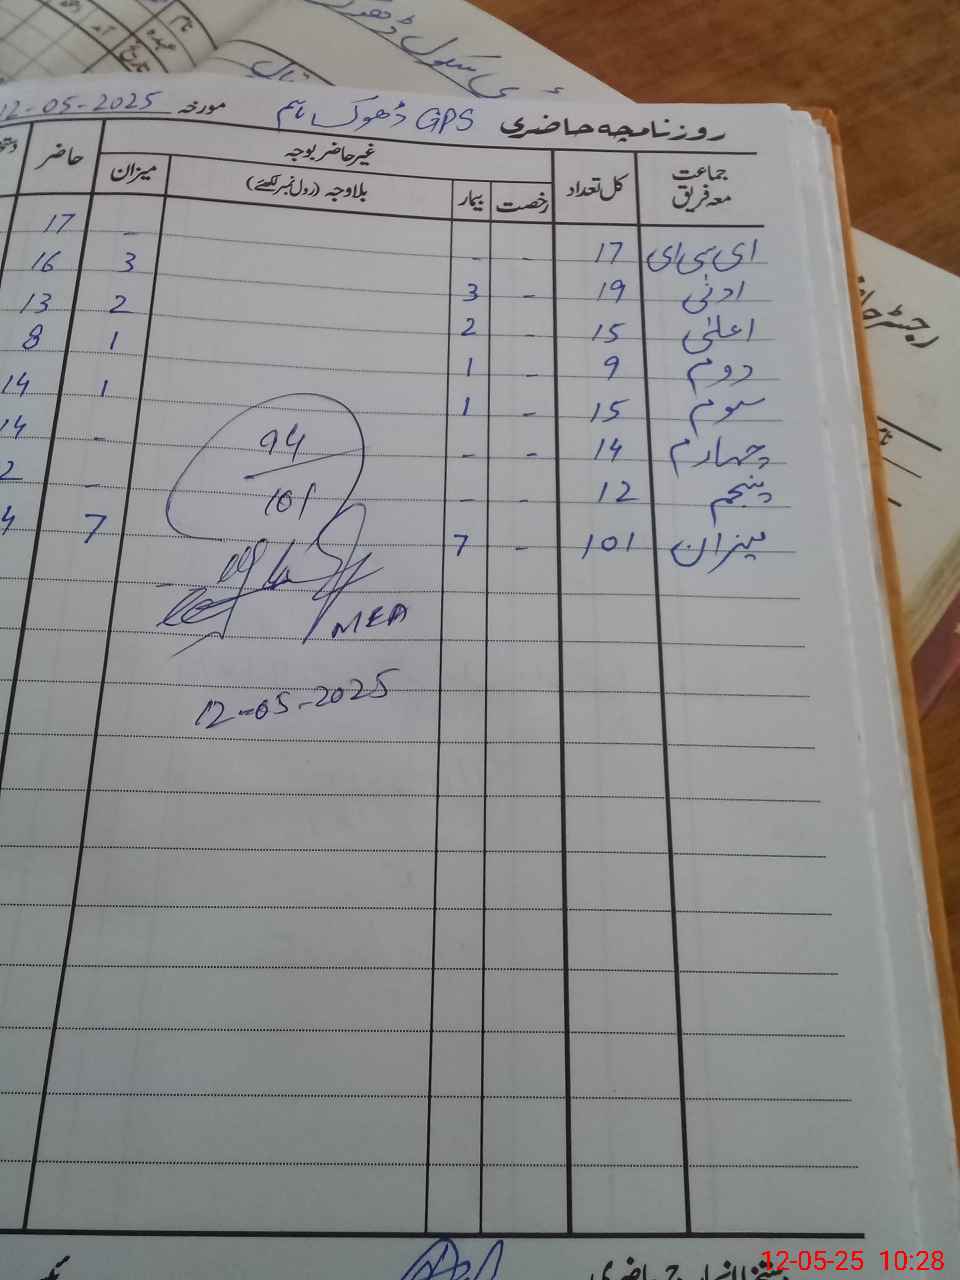 روزنامچہ حاضری GPS ڈھوک مورخہ 12-05-2025
جماعت معہ فریق کل تعداد غیر حاضر بوجہ حاضر
رخصت بیمار بلاوجہ (رول نمبر لکھئے) میزان
ای سی ای 17 - - - 17
ادنٰی 19 - 3 3 16
اعلیٰ 15 - 2 2 13
دوم 9 - 1 1 8
سوم 15 - 1 1 14
چہارم 14 - - - 14
پنجم 12 - - - 2
میزان 101 - 7 7 4
94
101
MEA
12-05-2025
رجسٹر
12-05-25 10:28